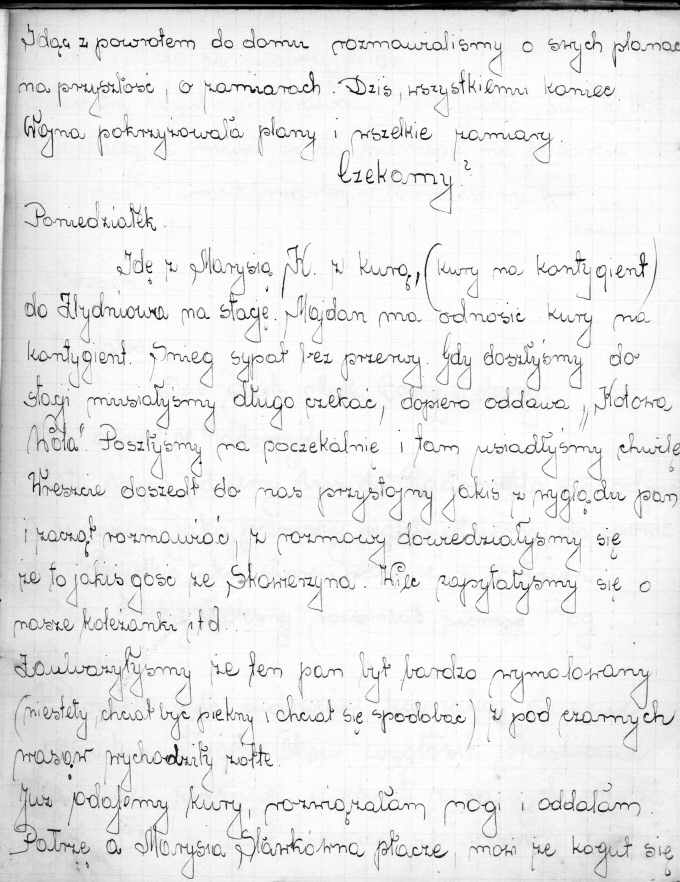 Idąc z powrotem do domu rozmawialismy o swych planac
na przyszłość, o zamiarach. Dzis, wszystkiemu koniec.
Wojna pokrzyżowała plany i wszelkie zamiary.
Czekamy?
Poniedziałek.
Idę z Marysią K. z kurą, (kury na kontygient)
do Zbydniowa na stagę. Majdan ma odnosić kury na
kontygient. Śnieg sypał bez przerwy. Gdy doszłyśmy do
stagi musiałyśmy długo czekać, dopiero oddawa „Kotowa
Wola". Poszłyśmy na poczekalnie i tam usiadłyśmy chwilę
Wreszcie doszedł do nas przystojny jakis z wyglądu pan
i zaczął rozmawiać, z rozmowy dowiedziałyśmy się
że to jakiś gość ze Skowierzyna. Więc zapytałyśmy się o
nasze koleżanki itd..
Zauważyłyśmy że ten pan był bardzo wymalowany
(niestety, chciał być piękny i chciał się spodobać) z pod czarnych
wąsów wychodziły żółte.
Już podajemy kury, rozwiązałam nogi i oddałam.
Patrzę a Marysia Sławkówna płacze, mówi że kogut się